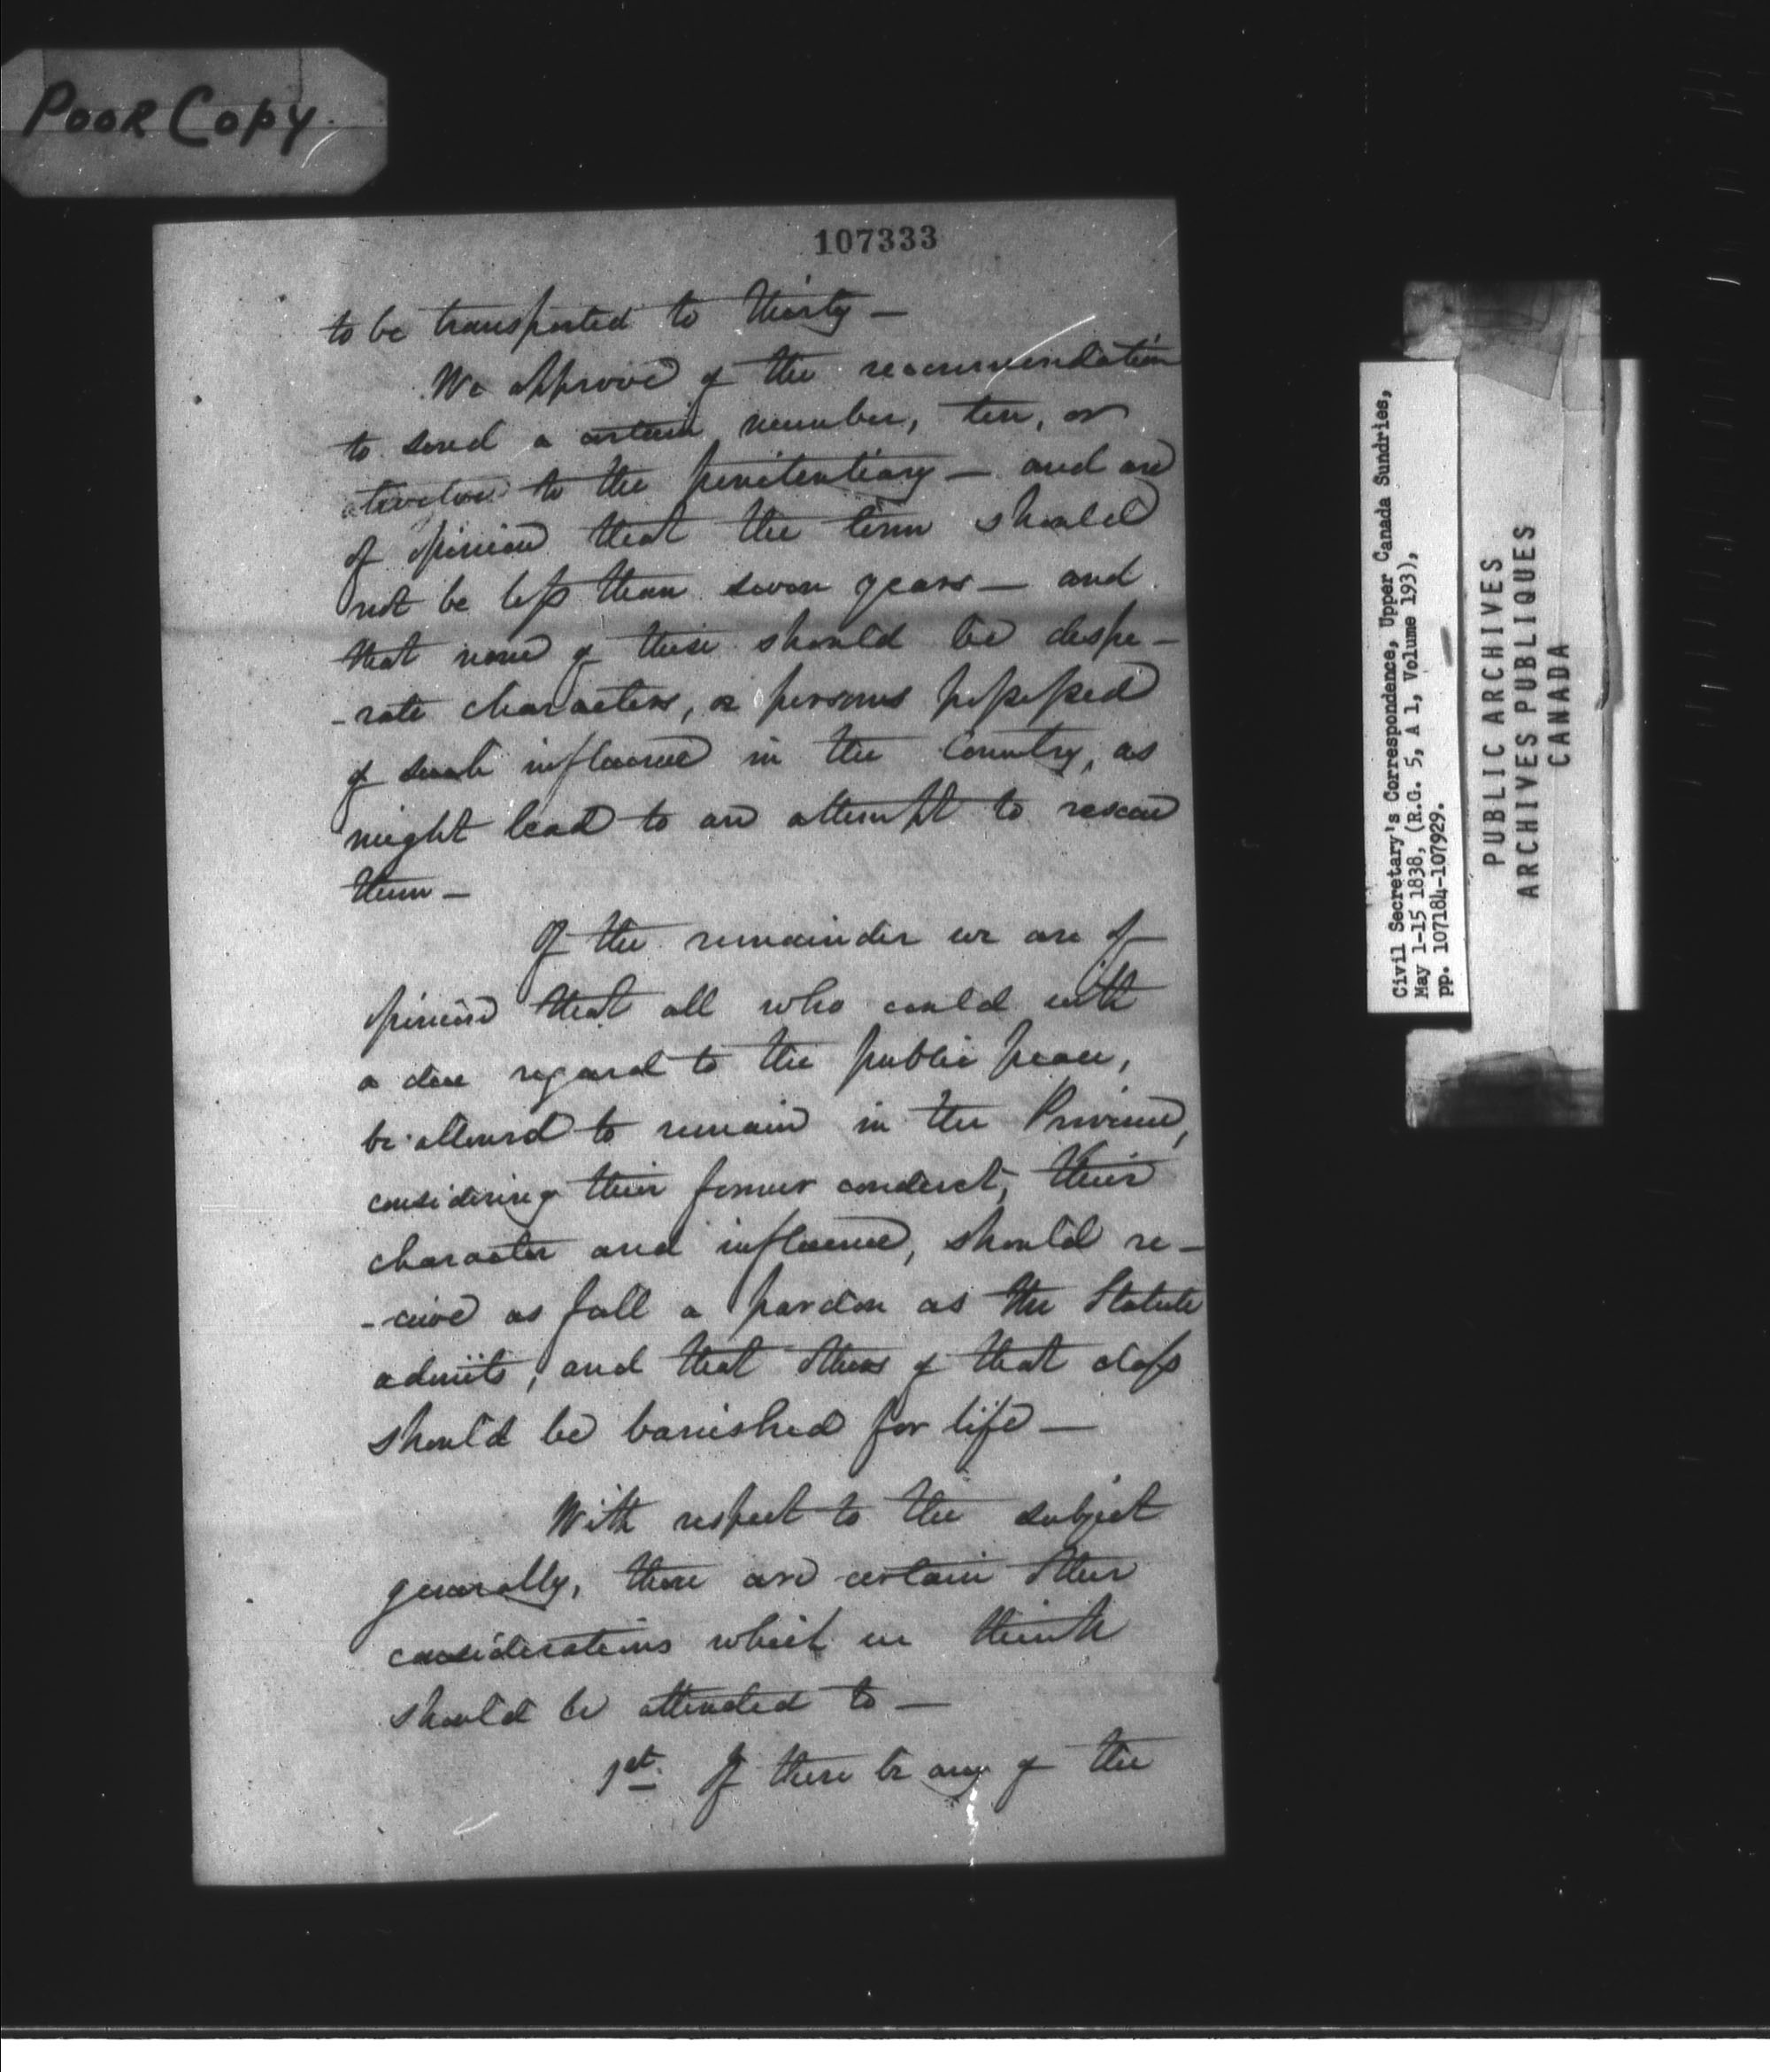 POOR COPY.
107333
to be transported to thirty —
We approve of the recommendation
to send a certain number, ten, or
twelve to the penitentiary — and are
of opinion that the term should
not be less than seven years — and
that none of these should be despe-
-rate characters, or persons possessed
of such influence in the Country, as
might lead to an attempt to rescue
them —
Of the remainder we are of
opinion that all who could with
a due regard to the public peace,
be allowed to remain in the Province,
considering their former conduct, their
character and influence, should re-
-ceive as full a pardon as the Statute
admits, and that others of that class
should be banished for life —
With respect to the subject
generally, there are certain other
considerations which we think
should be attended to —
1st. If there be any of the
Civil Secretary's Correspondence, Upper Canada Sundries,
May 1-15 1838, (R.G. 5, A 1, Volume 193),
pp. 107184-107929.
PUBLIC ARCHIVES
ARCHIVES PUBLIQUES
CANADA